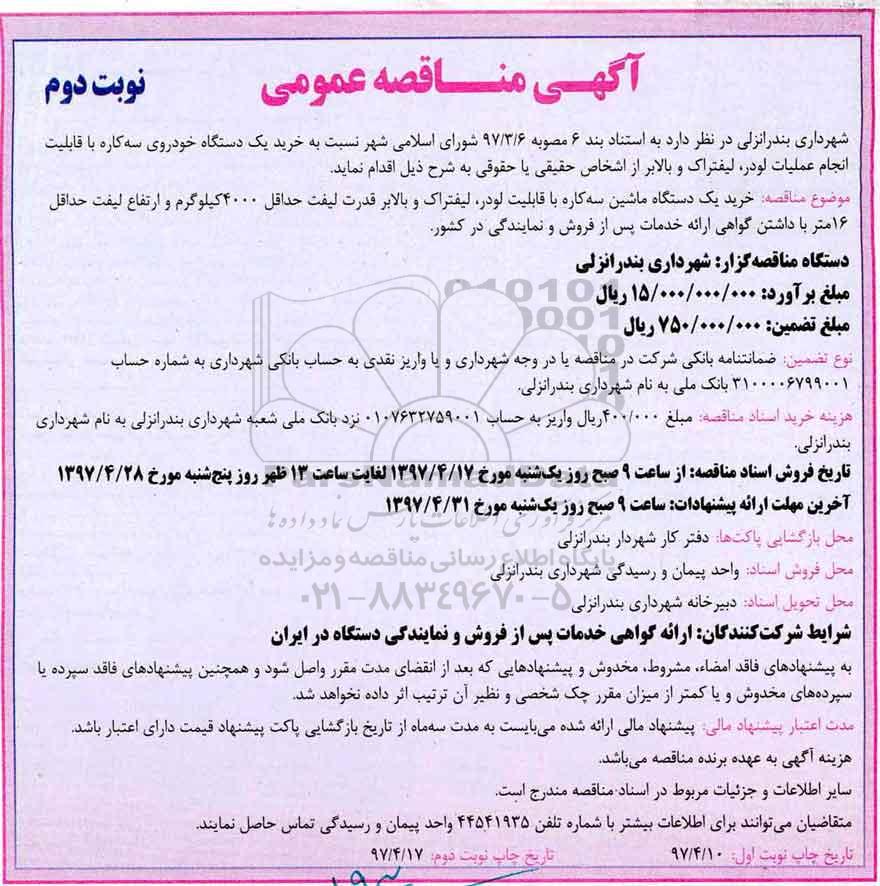 آگهی مناقصه عمومی
نوبت دوم
شهرداری بندرانزلی در نظر دارد به استناد بند ۶ مصوبه ۹۷/۳/۶ شورای اسلامی شهر نسبت به خرید یک دستگاه خودروی سه‌کاره با قابلیت
انجام عملیات لودر، لیفتراک و بالابر از اشخاص حقیقی یا حقوقی به شرح ذیل اقدام نماید.
موضوع مناقصه: خرید یک دستگاه ماشین سه‌کاره با قابلیت لودر، لیفتراک و بالابر قدرت لیفت حداقل ۴۰۰۰کیلوگرم و ارتفاع لیفت حداقل
۱۶متر با داشتن گواهی ارائه خدمات پس از فروش و نمایندگی در کشور.
دستگاه مناقصه‌گزار: شهرداری بندرانزلی
مبلغ برآورد: ۱۵/۰۰۰/۰۰۰/۰۰۰ ریال
مبلغ تضمین: ۷۵۰/۰۰۰/۰۰۰ ریال
نوع تضمین: ضمانتنامه بانکی شرکت در مناقصه یا در وجه شهرداری و یا واریز نقدی به حساب بانکی شهرداری به شماره حساب
۳۱۰۰۰۰۶۷۹۹۰۰۱ بانک ملی به نام شهرداری بندرانزلی.
هزینه خرید اسناد مناقصه: مبلغ ۴۰۰/۰۰۰ریال واریز به حساب ۰۱۰۷۶۳۲۷۵۹۰۰۱ نزد بانک ملی شعبه شهرداری بندرانزلی به نام شهرداری
بندرانزلی.
تاریخ فروش اسناد مناقصه: از ساعت ۹ صبح روز یک‌شنبه مورخ ۱۳۹۷/۴/۱۷ لغایت ساعت ۱۳ ظهر روز پنج‌شنبه مورخ ۱۳۹۷/۴/۲۸
آخرین مهلت ارائه پیشنهادات: ساعت ۹ صبح روز یک‌شنبه مورخ ۱۳۹۷/۴/۳۱
محل بازگشایی پاکت‌ها: دفتر کار شهردار بندرانزلی
پایگاه اطلاع رسانی مناقصه و مزایده
محل فروش اسناد: واحد پیمان و رسیدگی شهرداری بندرانزلی
۰۲۱-۸۸۳۴۹۶۷۰-۵
محل تحویل اسناد: دبیرخانه شهرداری بندرانزلی
شرایط شرکت‌کنندگان: ارائه گواهی خدمات پس از فروش و نمایندگی دستگاه در ایران
به پیشنهادهای فاقد امضاء، مشروط، مخدوش و پیشنهادهایی که بعد از انقضای مدت مقرر واصل شود و همچنین پیشنهادهای فاقد سپرده یا
سپرده‌های مخدوش و یا کمتر از میزان مقرر چک شخصی و نظیر آن ترتیب اثر داده نخواهد شد.
مدت اعتبار پیشنهاد مالی: پیشنهاد مالی ارائه شده می‌بایست به مدت سه‌ماه از تاریخ بازگشایی پاکت پیشنهاد قیمت دارای اعتبار باشد.
هزینه آگهی به عهده برنده مناقصه می‌باشد.
سایر اطلاعات و جزئیات مربوط در اسناد مناقصه مندرج است.
متقاضیان می‌توانند برای اطلاعات بیشتر با شماره تلفن ۴۴۵۴۱۹۳۵ واحد پیمان و رسیدگی تماس حاصل نمایند.
تاریخ چاپ نوبت اول: ۹۷/۴/۱۰ تاریخ چاپ نوبت دوم: ۹۷/۴/۱۷